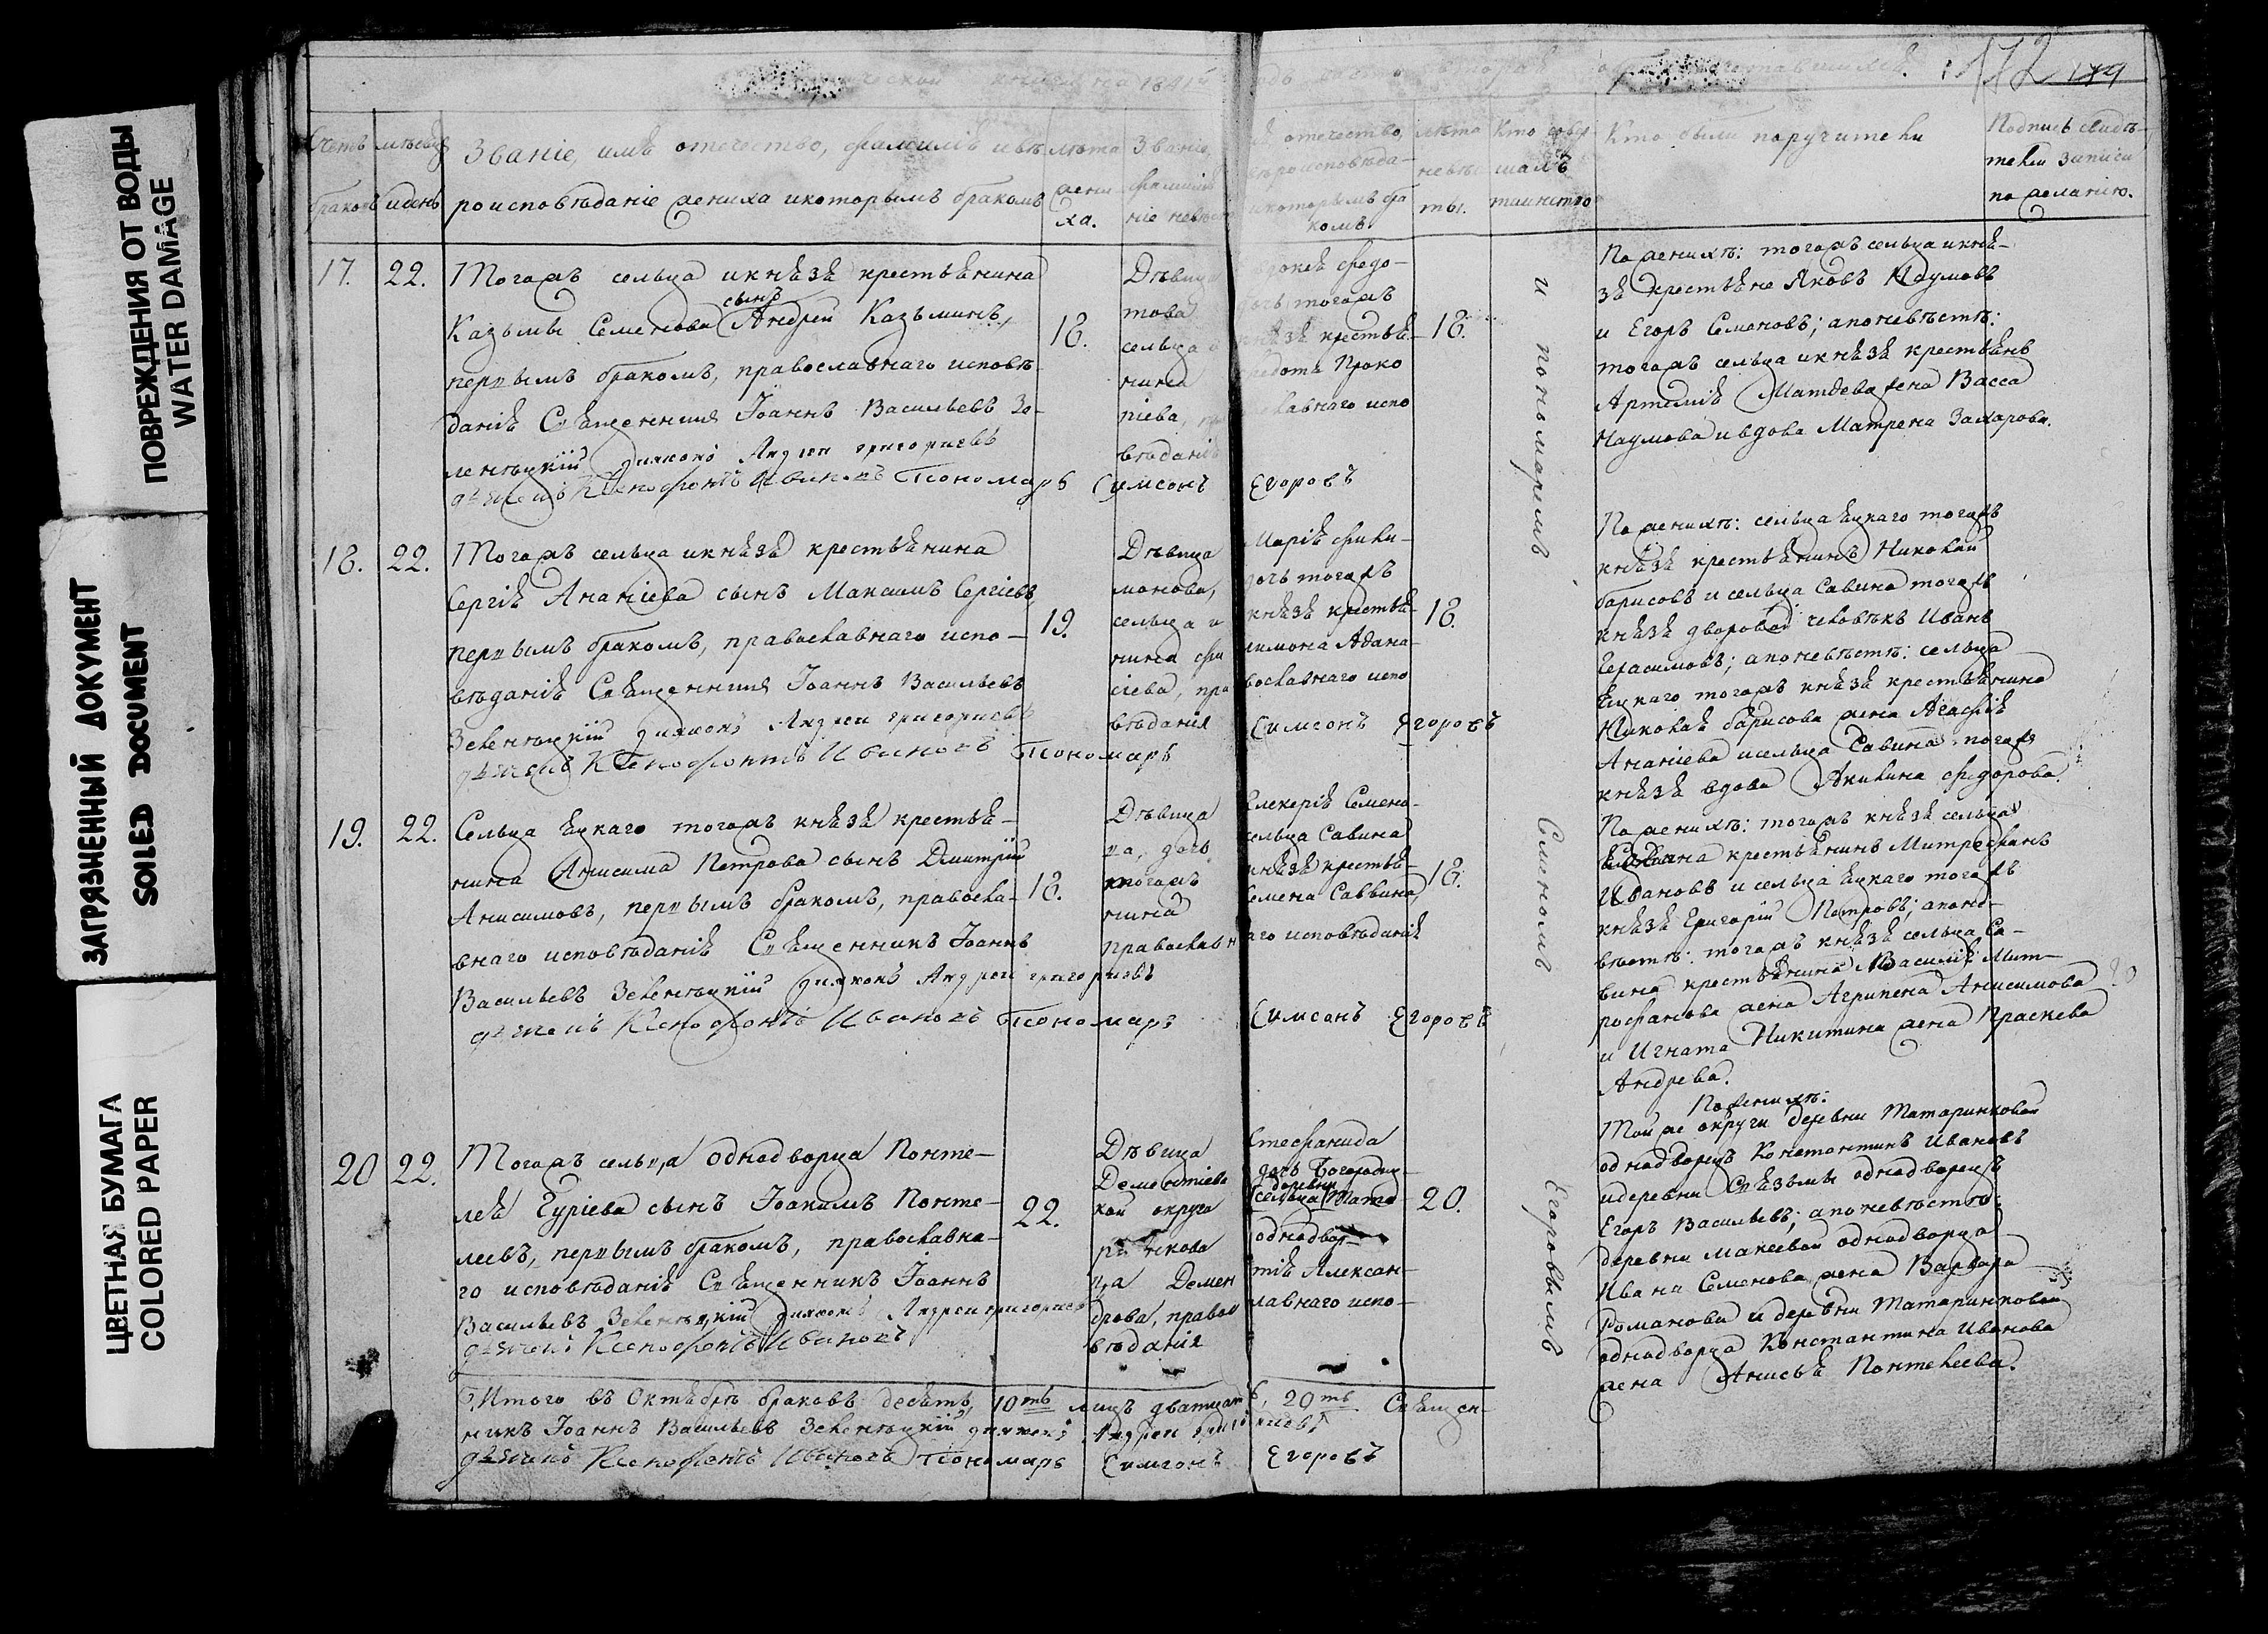 ПОВРЕЖДЕНИЯ ОТ ВОДЫ
WATER DAMAGE
ЗАГРЯЗНЕННЫЙ ДОКУМЕНТ
SOILED DOCUMENT
ЦВЕТНАЯ БУМАГА
COLORED PAPER
172 179
Званіе, имя отечество, фамилія и вѣ
роисповѣданіе жениха и которымъ бракомъ
лѣта
жени
ха.
Званіе,
фамилія
ніе невѣсты
отечество,
вѣроисповѣда-
и которымъ бра
комъ
лѣта
невѣс
ты.
Кто совер
шалъ
таинство
Кто были поручители
Подпись свидѣ-
телей записи
по желанію.
17. 22.
Тогожъ сельца и князя крестьянина
Казьмы Семенова сынъ Андрей Казьминъ,
первымъ бракомъ, православнаго исповѣ
данія Священникъ Іоаннъ Васильевъ Зе-
ленѣцкій діяконъ Андрей григорьевъ
дьячекъ Ксенофонтъ Ивановъ Пономарь Симеонъ Егоровъ
18.
Дѣвица
това
сельца и князя крестья-
нина Федота Проко
піева, православнаго испо
вѣданія
дочь тогожъ
18.
По женихѣ: тогожъ сельца и кня-
зя крестьяне Яковъ Наумовъ
и Егоръ Семеновъ; а по невѣстѣ:
тогожъ сельца и князя крестьянъ
Артемія Матвева жена Васса
Наумова и вдова Матрена Захарова.
18. 22.
Тогожъ сельца и князя крестьянина
Сергія Ананіева сынъ Максимъ Сергіевъ,
первымъ бракомъ, православнаго испо-
вѣданія Священникъ Іоаннъ Васильевъ
Зеленѣцкій діяконъ Андрей григорьевъ
дьячекъ Ксенофонтъ Ивановъ Пономарь Симеонъ Егоровъ
19.
Дѣвица Марія Фили-
монова, дочь тогожъ
сельца и князя крестья-
нина Филимона Афана-
сіева, православнаго испо
вѣданія
18.
По женихѣ: сельца Ецкаго тогожъ
князя крестьянинъ Николай
Барисовъ и сельца Савина тогожъ
князя дворовой человѣкъ Иванъ
Герасимовъ; а по невѣстѣ: сельца
Ецкаго тогожъ князя крестьянина
Николая Барисова жена Агафія
Ананіева и сельца Савина тогожъ
князя вдова Акилина Федорова.
19. 22.
Сельца Ецкаго тогожъ князя крестья-
нина Анисима Петрова сынъ Дмитрій
Анисимовъ, первымъ бракомъ, правосла-
внаго исповѣданія Священникъ Іоаннъ
Васильевъ Зеленѣцкій діяконъ Андрей григорьевъ
дьячекъ Ксенофонтъ Ивановъ Пономарь Симеонъ Егоровъ
18.
Дѣвица Гликерія Семено-
ва, дочь сельца Савина
тогожъ князя крестья-
нина Семена Саввина,
православнаго исповѣданія
18.
По женихѣ: тогожъ князя сельца
Савина крестьянинъ Митрофанъ
Ивановъ и сельца Ецкаго тогожъ
князя Григорій Петровъ; а по не-
вѣстѣ: тогожъ князя сельца Са-
вина крестьянина Василія Мит-
рофанова жена Агрипена Анисимова
и Игната Никитина жена Праскева
Андрева.
20 22.
Тогожъ сельца однодворца Понте-
лея Гуріева сынъ Іоакимъ Понте-
леевъ, первымъ бракомъ, православна-
го исповѣданія Священникъ Іоаннъ
Васильевъ Зеленѣцкій діяконъ Андрей григорьевъ
дьячекъ Ксенофонтъ Ивановъ
22.
Дѣвица Стефанида
Дементіева дочь Богородиц-
кой округи деревни Тата
ринкова однодвор-
ца Дементія Алексан-
дрова, православнаго испо-
вѣданія
20.
По женихѣ:
Той же округи деревни Татаринковой
однодворецъ Константинъ Ивановъ
и деревни Свѣзьмы однодворецъ
Егоръ Васильевъ; а по невѣстѣ:
деревни Макеевой однодворца
Ивана Семенова жена Варвара
Романова и деревни Татаринковой
однодворца Константина Иванова
жена Анисья Понтелеева.
и поньмаремъ Семеномъ Егоровымъ
Итого въ Октябрѣ браковъ десять, 10ть лицъ дватцать, 20ть Священ-
никъ Іоаннъ Васильевъ Зеленѣцкій діяконъ Андрей григорьевъ
дьячекъ Ксенофонтъ Ивановъ Пономарь Симеонъ Егоровъ